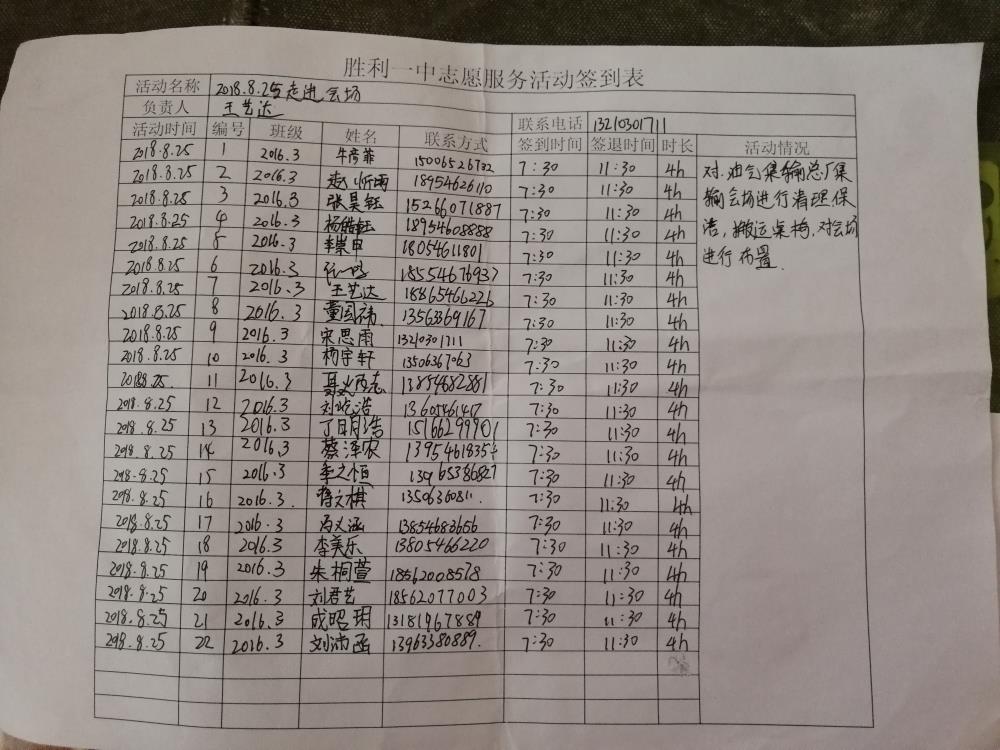 胜利一中志愿服务活动签到表
活动名称 2018.8.25走进会场
负责人 王艺达 联系电话 13210301711
活动时间 编号 班级 姓名 联系方式 签到时间 签退时间 时长 活动情况
2018.8.25 1 2016.3 牛彦菲 15006526732 7:30 11:30 4h
2018.8.25 2 2016.3 赵忻雨 18954626110 7:30 11:30 4h
2018.8.25 3 2016.3 张昊钰 15266071887 7:30 11:30 4h
2018.8.25 4 2016.3 18954608888 7:30 11:30 4h
2018.8.25 5 2016.3 李崇申 18054611801 7:30 11:30 4h
2018.8.25 6 2016.3 18554676937 7:30 11:30 4h
2018.8.25 7 2016.3 王艺达 18865466226 7:30 11:30 4h
2018.8.25 8 2016.3 13563369167 7:30 11:30 4h
2018.8.25 9 2016.3 宋思雨 13210301711 7:30 11:30 4h
2018.8.25 10 2016.3 杨宇轩 13506367063 7:30 11:30 4h
20188.25. 11 2016.3 聂炳志 13854682881 7:30 11:30 4h
2018.8.25 12 2016.3 刘屹浩 7:30 11:30 4h
2018.8.25 13 2016.3 丁明浩 15166299901 7:30 11:30 4h
2018.8.25 14 2016.3 蔡泽农 13954618354 7:30 11:30 4h
2018.8.25 15 2016.3 李之恒 13965386827 7:30 11:30 4h
2018.8.25 16 2016.3 13506360811. 7:30 11:30 4h
2018.8.25 17 2016.3 冯义涵 13854683656 7:30 11:30 4h
2018.8.25 18 2016.3 李美乐 13805466220 7:30 11:30 4h
2018.8.25 19 2016.3 朱桐萱 18562008578 7:30 11:30 4h
2018.8.25 20 2016.3 刘君艺 18562077003 7:30 11:30 4h
2018.8.25 21 2016.3 成昭玥 13181967889 7:30 11:30 4h
2018.8.25 22 2016.3 刘沛函 13963380889. 7:30 11:30 4h
对油气集输总厂集
输会场进行清理保
洁,搬运桌椅,对会场
进行布置.